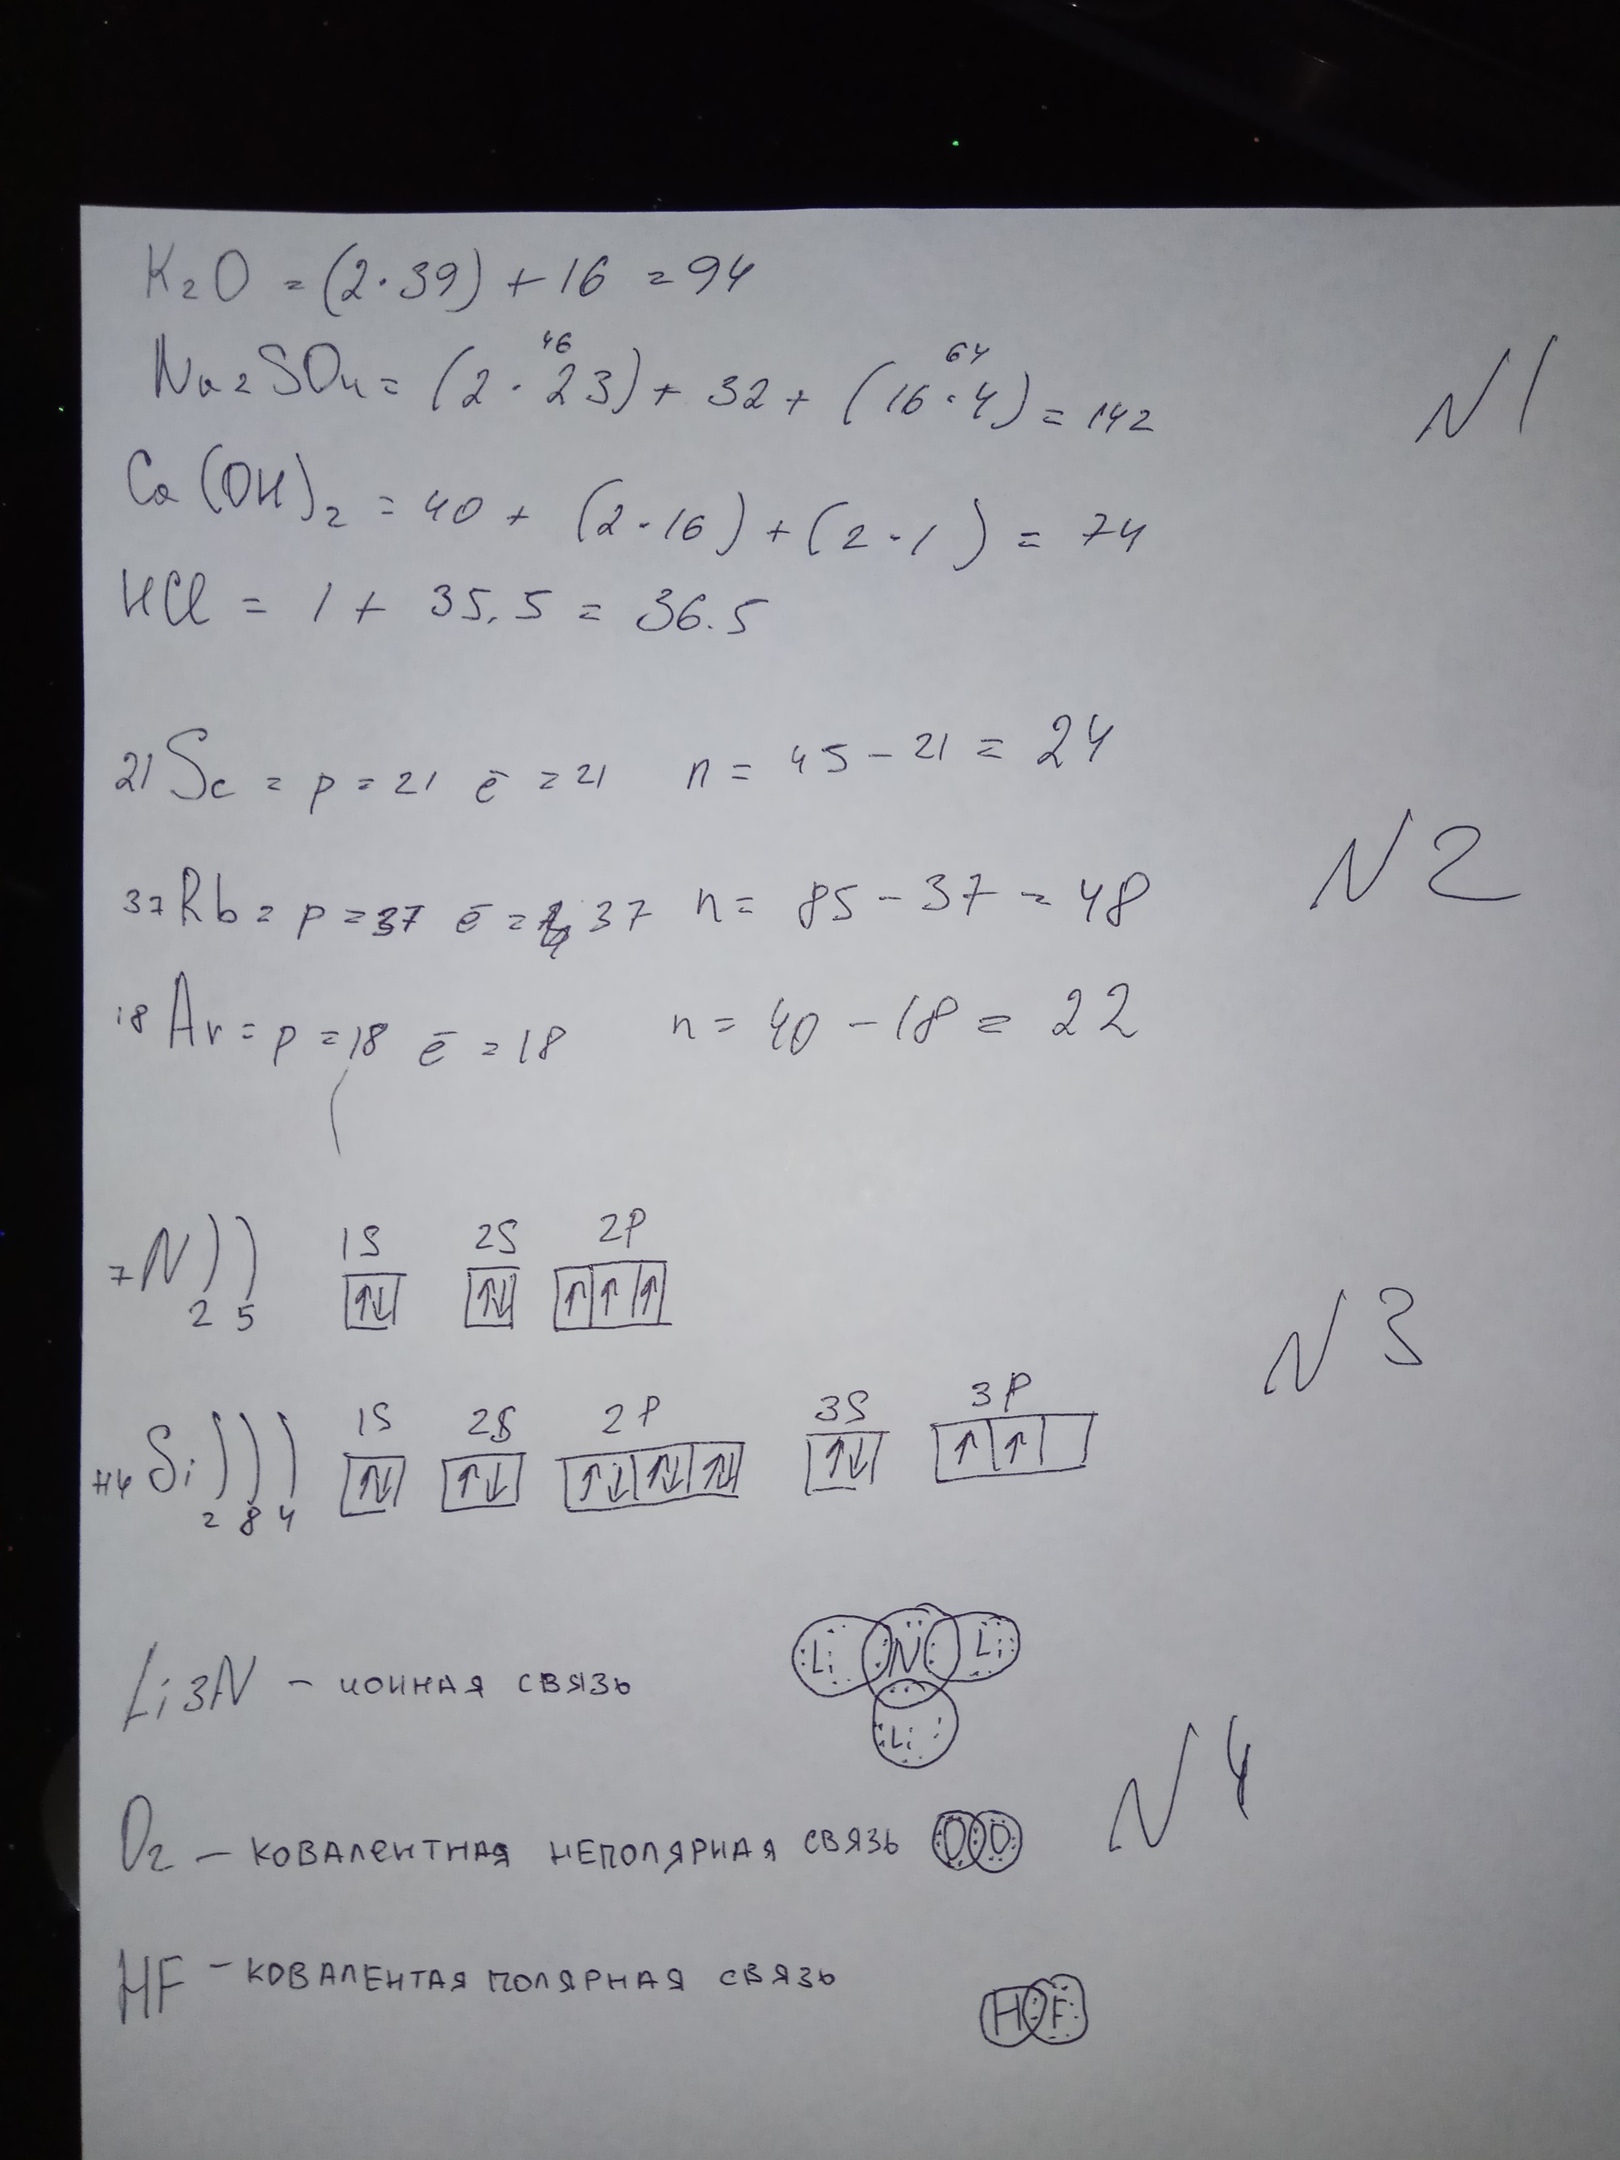 K₂O = (2·39) + 16 = 94
46 64
Na₂SO₄ = (2·23) + 32 + (16·4) = 142
N1
Ca(OH)₂ = 40 + (2·16) + (2·1) = 74
HCl = 1 + 35,5 = 36.5
21 Sc = p = 21 ē = 21 n = 45 - 21 = 24
N2
37 Rb = p = 37 ē = 37 n = 85 - 37 = 48
18 Ar = p = 18 ē = 18 n = 40 - 18 = 22
1S 2S 2P
7 N ) ) ↑↓ ↑↓ ↑ ↑ ↑
2 5
N3
1S 2S 2P 3S 3P
14 Si ) ) ) ↑↓ ↑↓ ↑↓ ↑↓ ↑↓ ↑↓ ↑ ↑
2 8 4
Li N Li
Li₃N – ионная связь
Li
N4
O₂ – ковалентная неполярная связь O O
HF – ковалентая полярная связь
H F